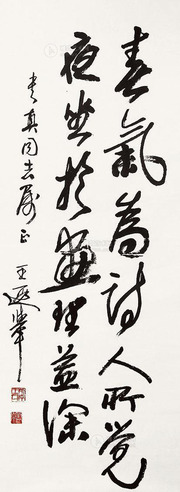 春氣為詩人所覺
夜坐於畫理益深
真同志屬正
王遐舉